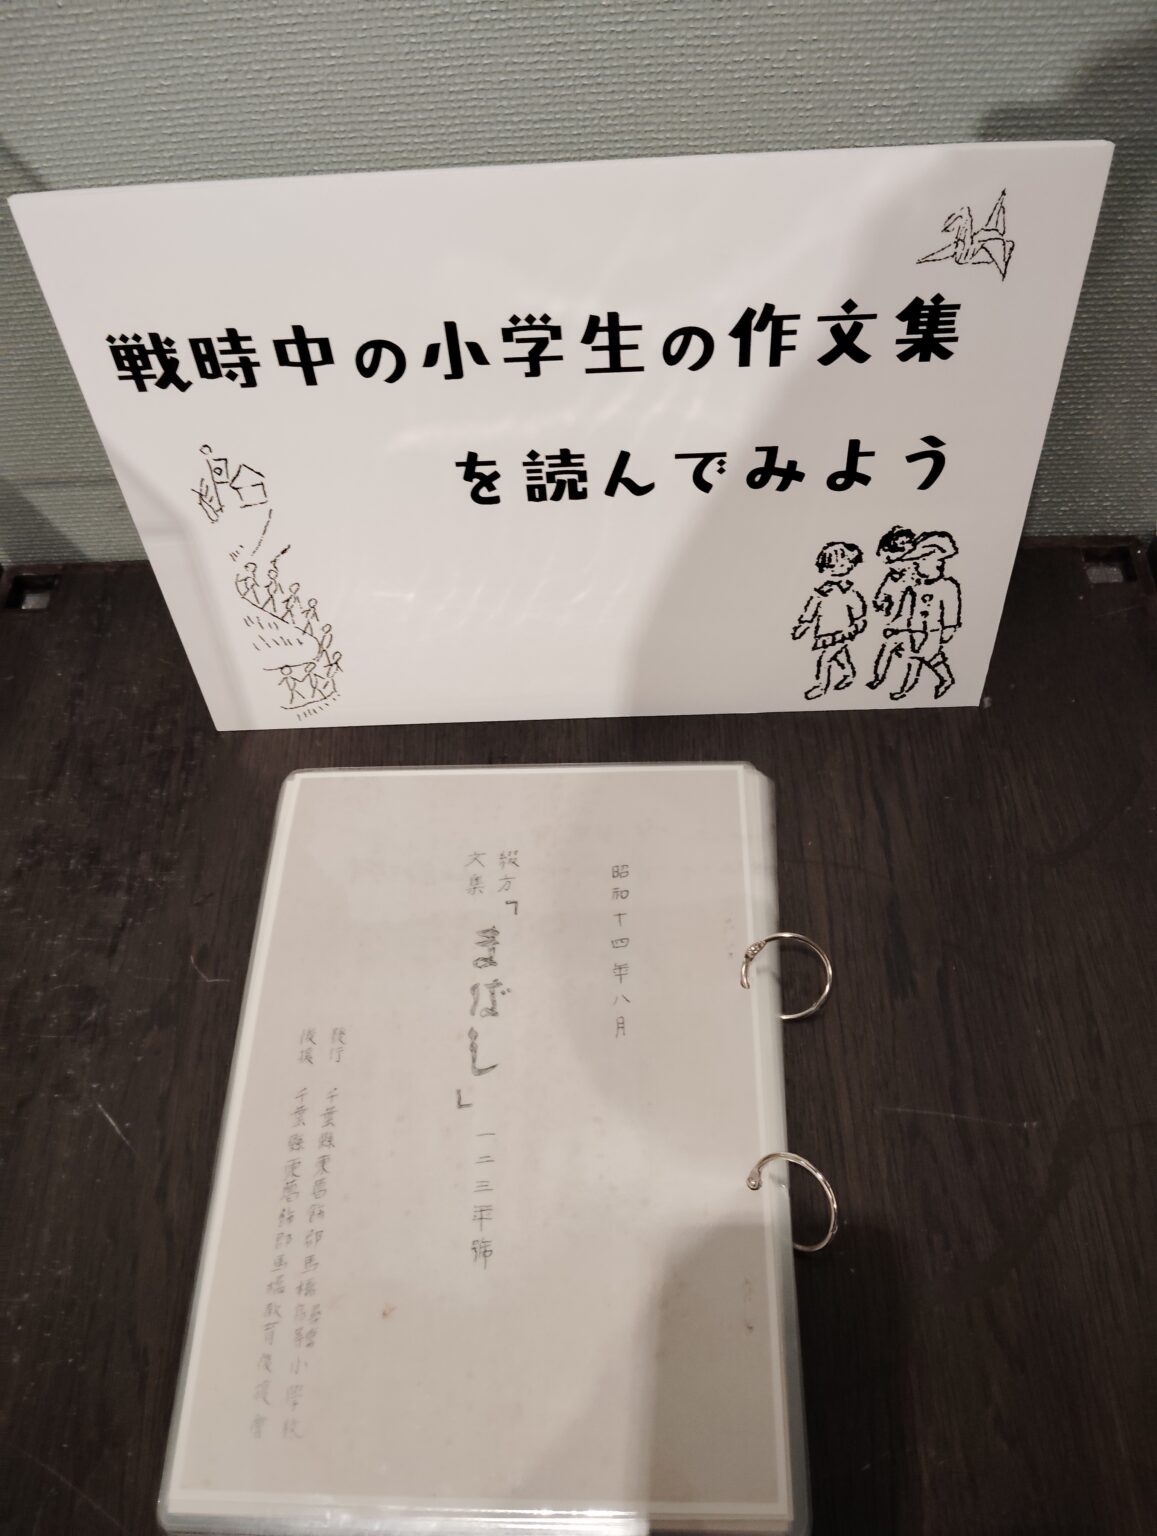 戦時中の小学生の作文集
を読んでみよう
昭和十四年八月
綴方
文集
「まばし」一二三年号
發行 千葉縣東葛飾郡馬橋尋常高等小學校
後援 千葉縣東葛飾郡馬橋教育後援會